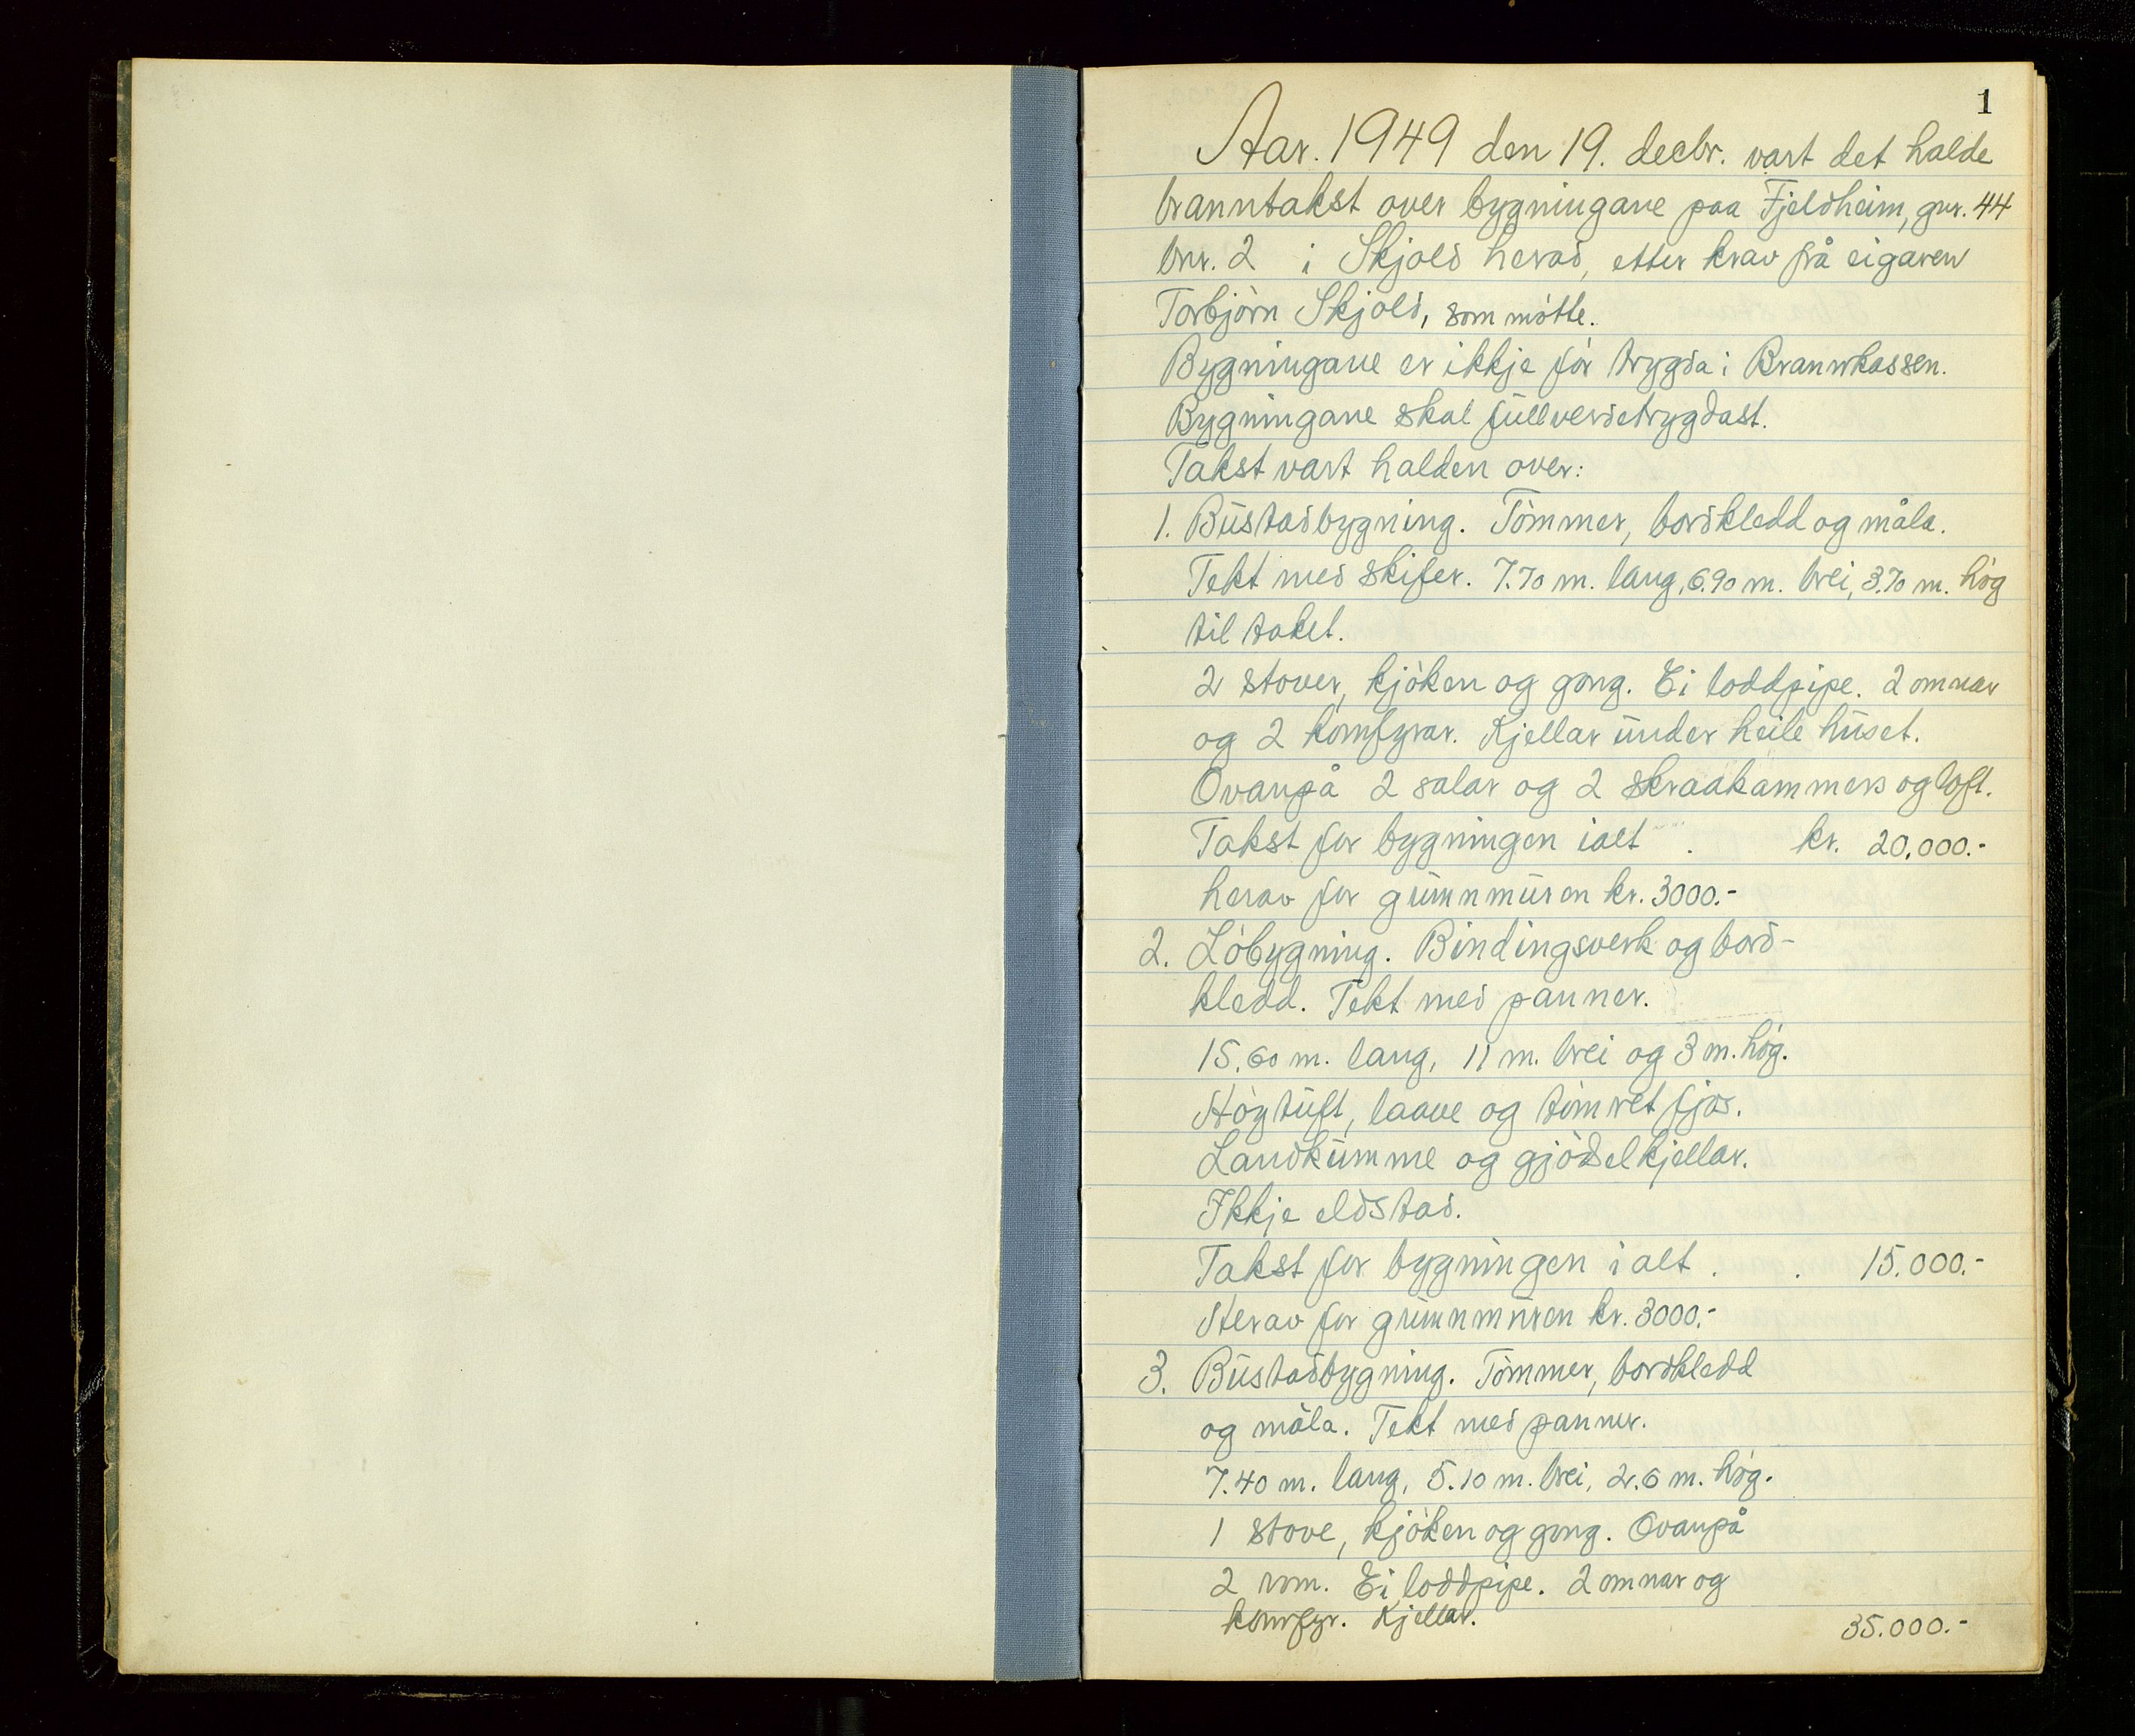 1
Aar. 1949 den 19. decbr. vart det halde
branntakst over bygningane paa Fjeldheim, gnr. 44
bnr. 2 i Skjold herad, etter krav frå eigaren
Torbjörn Skjold, som mötte.
Bygningane er ikkje för trygda i Brannkassen.
Bygningane skal fullverdetrygdast.
Takst vart halden over:
1. Bustadbygning. Tömmer, bordkledd og måla.
Tekt med skifer. 7.70 m. lang, 6.90 m. brei, 3.70 m. hög
til taket.
2 stover, kjöken og gong. Ei loddpipe. 2 omnar
og 2 komfyrar. Kjellar under heile huset.
Ovanpå 2 salar og 2 skraakammers og loft.
Takst for bygningen ialt . kr. 20.000.-
herav for grunnmuren kr. 3000.-
2. Löbygning. Bindingsverk og bord-
kledd. Tekt med panner.
15.60 m. lang, 11 m. brei og 3 m. hög.
Högtuft, laave og tömret fjos.
Landkumme og gjödselkjellar.
Ikkje eldstad.
Takst for bygningen ialt . . 15.000.-
Herav for grunnmuren kr. 3000.-
3. Bustadbygning. Tömmer, bordkledd
og måla. Tekt med panner.
7.40 m. lang, 5.10 m. brei, 2.6 m. hög.
1 stove, kjöken og gong. Ovanpå
2 rom. Ei loddpipe. 2 omnar og
komfyr. Kjellar.
35.000.-